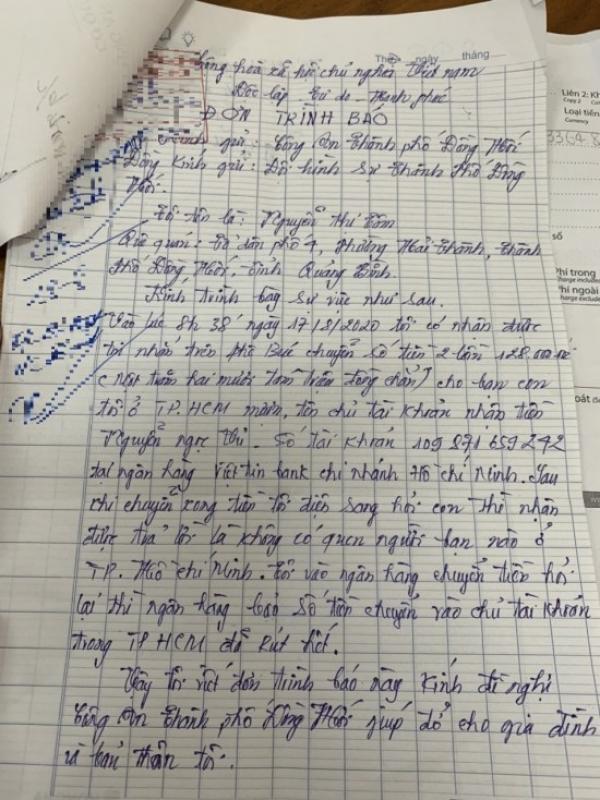 Thứ ngày tháng
Cộng hoà xã hội chủ nghĩa Việt nam
Độc lập Tự do - Hạnh phúc
ĐƠN TRÌNH BÁO
Kính gửi: Công An thành phố Đồng Hới
Đồng Kính gửi: Đội hình sự thành phố Đồng
Hới.
Tôi tên là: Nguyễn Thị Tâm
Quê quán: tổ dân phố 4, Phường Hải thành, thành
phố Đồng Hới, tỉnh Quảng Bình.
Kính trình bày sự việc như sau.
Vào lúc 8h 38 ngày 17/8/2020 tôi có nhận được
tin nhắn trên chuyển số tiền 2 lần 128.000.000
(một trăm hai mươi tám triệu đồng chẵn) cho bạn con
tôi ở TP.HCM tên chủ tài khoản nhận tiền
Nguyễn ngọc thi. Số tài khoản 109 871 659 242
tại ngân hàng Viettin bank chi nhánh Hồ chí Minh. Sau
khi chuyển xong tiền tôi điện sang hỏi con thì nhận
được trả lời là không có quen người bạn nào ở
TP. Hồ chí Minh. Tôi vào ngân hàng chuyển tiền hỏi
lại thì ngân hàng báo số tiền chuyển vào chủ tài khoản
trong TP HCM đã rút hết.
Vậy tôi viết đơn trình báo này kính đề nghị
Công An thành phố Đồng Hới giúp đỡ cho gia đình
và bản thân tôi.
Liên 2:
Copy 2
Loại tiền
Currency
số
Phí trong
Charge included
Phí ngoài